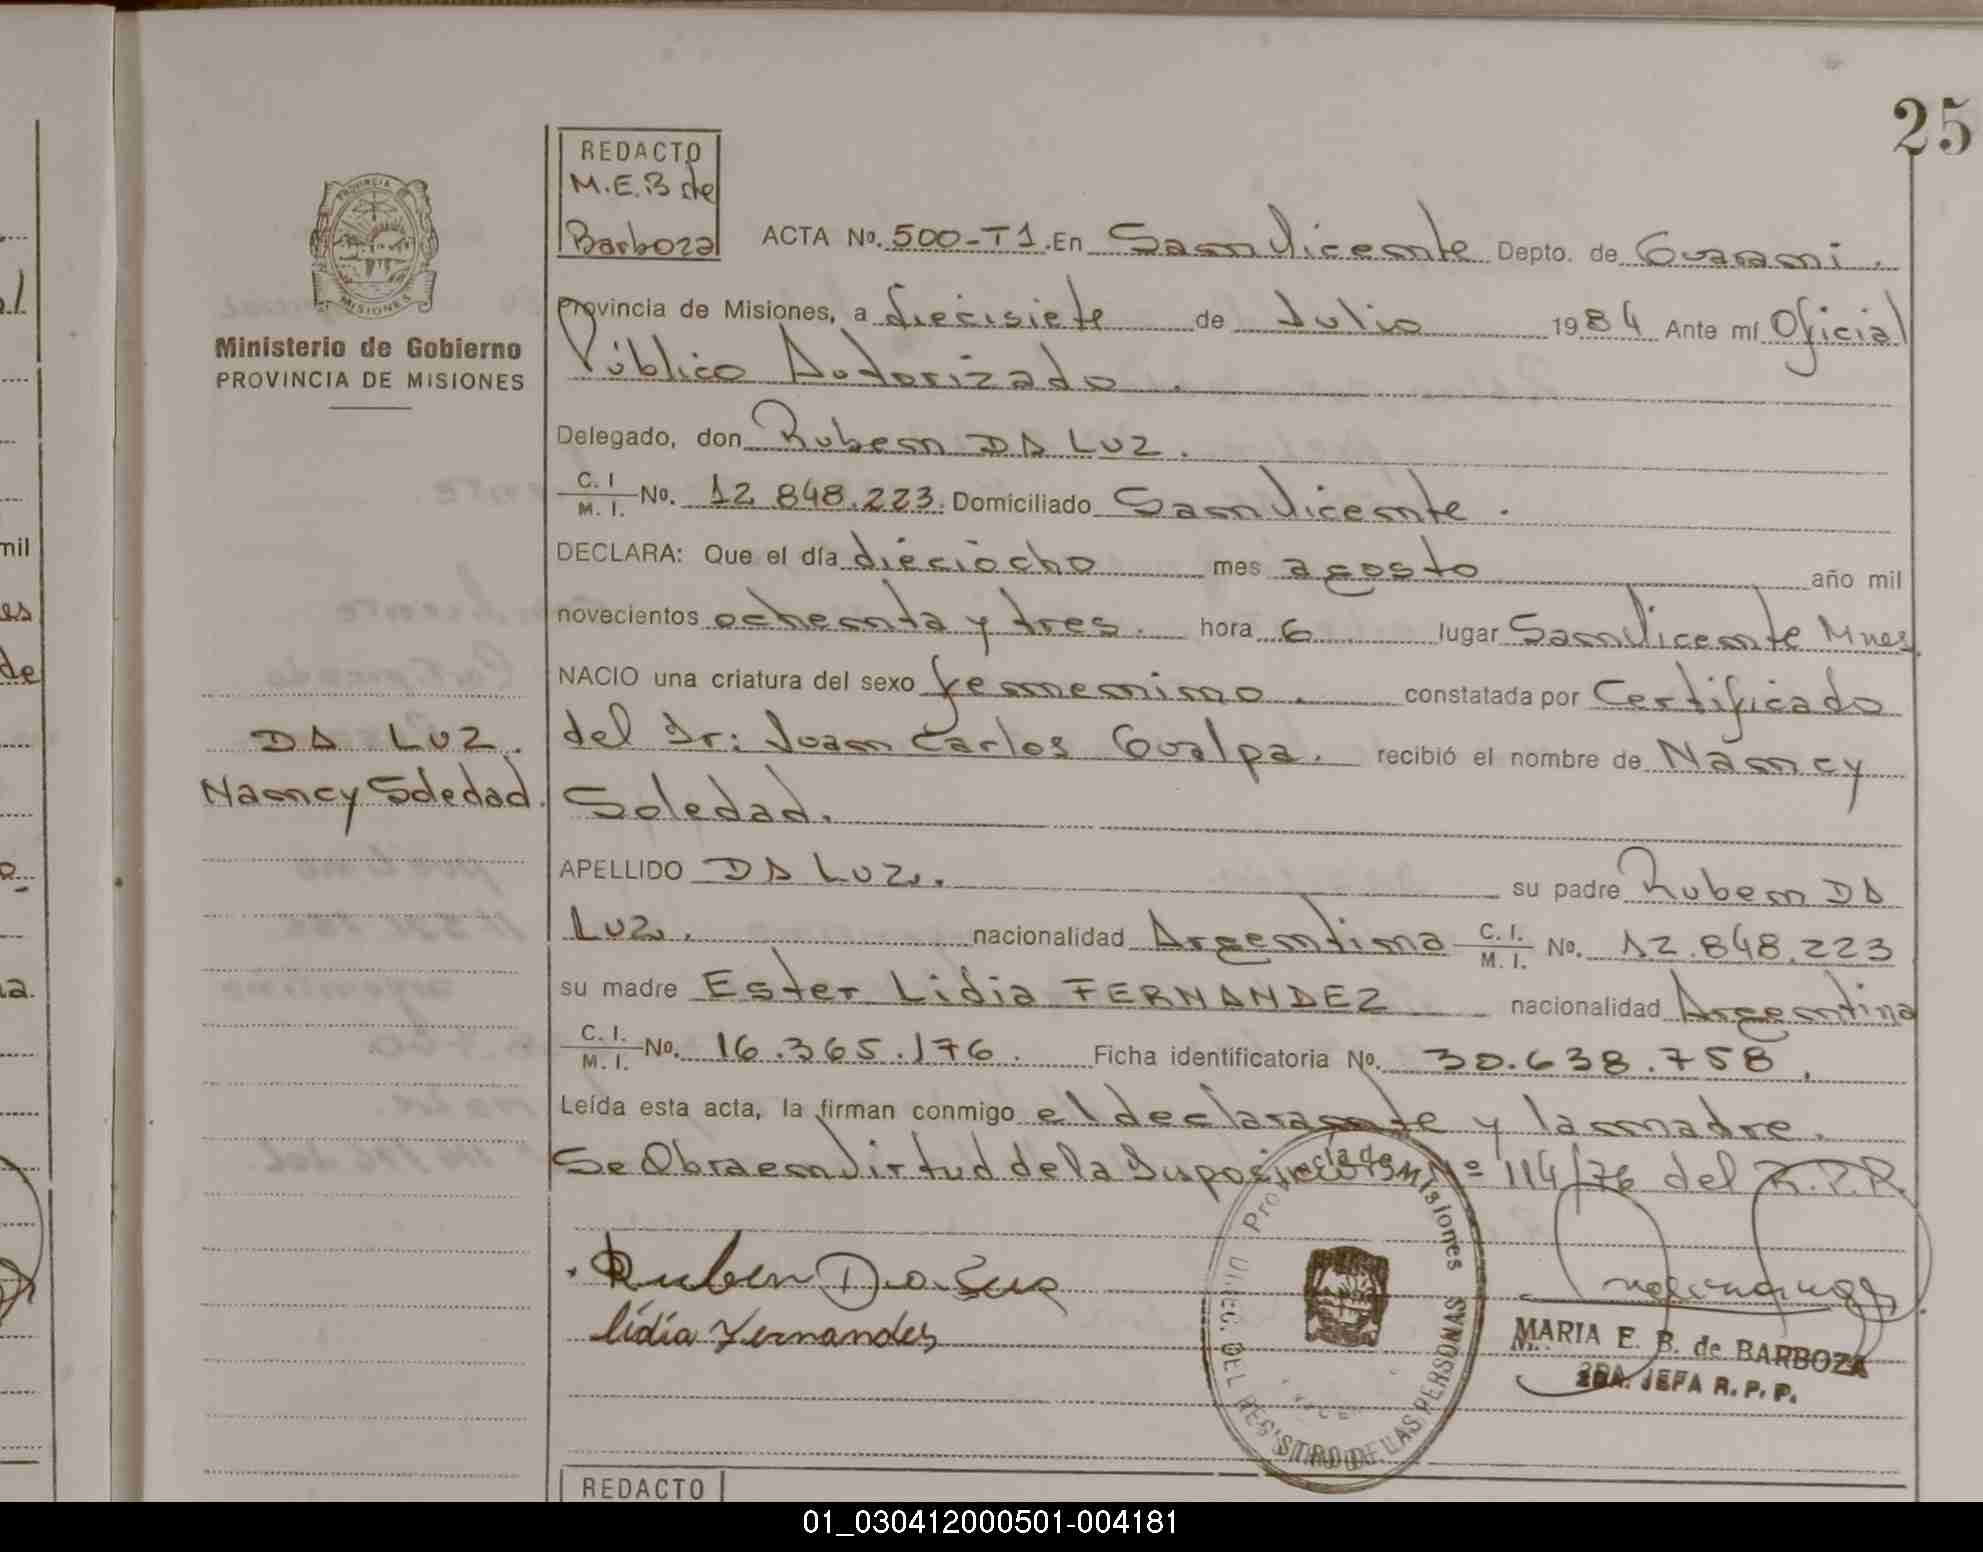 25
REDACTO
M.E.B de
Barboza
PROVINCIA
MISIONES
Ministerio de Gobierno
PROVINCIA DE MISIONES
ACTA No. 500-T1. En San Vicente Depto. de Guarani.
Provincia de Misiones, a diecisiete de Julio 1984 Ante mí Oficial
Público Autorizado.
Delegado, don Ruben DA LUZ.
C. I / M. I. No. 12.848.223. Domiciliado San Vicente.
DECLARA: Que el día dieciocho mes agosto año mil
novecientos ochenta y tres. hora 6 lugar San Vicente Mnes.
NACIO una criatura del sexo femenino. constatada por Certificado
del Dr: Juan Carlos Gualpa. recibió el nombre de Nancy
Soledad.
DA LUZ.
Nancy Soledad.
APELLIDO DA LUZ. su padre Ruben DA
LUZ. nacionalidad Argentina C. I. / M. I. No. 12.848.223
su madre Ester Lidia FERNANDEZ nacionalidad Argentina
C. I. / M. I. No. 16.365.176. Ficha identificatoria No. 30.638.758.
Leída esta acta, la firman conmigo el declarante y la madre.
Se Obra en virtud de la Disposición Nº 114/76 del R.P.P.
Ruben Da Luz
Lidia Fernandes
Provincia de Misiones
DIREC. DEL REGISTRO DE LAS PERSONAS
MARIA E. B. de BARBOZA
2DA. JEFA R. P. P.
REDACTO
01_030412000501-004181